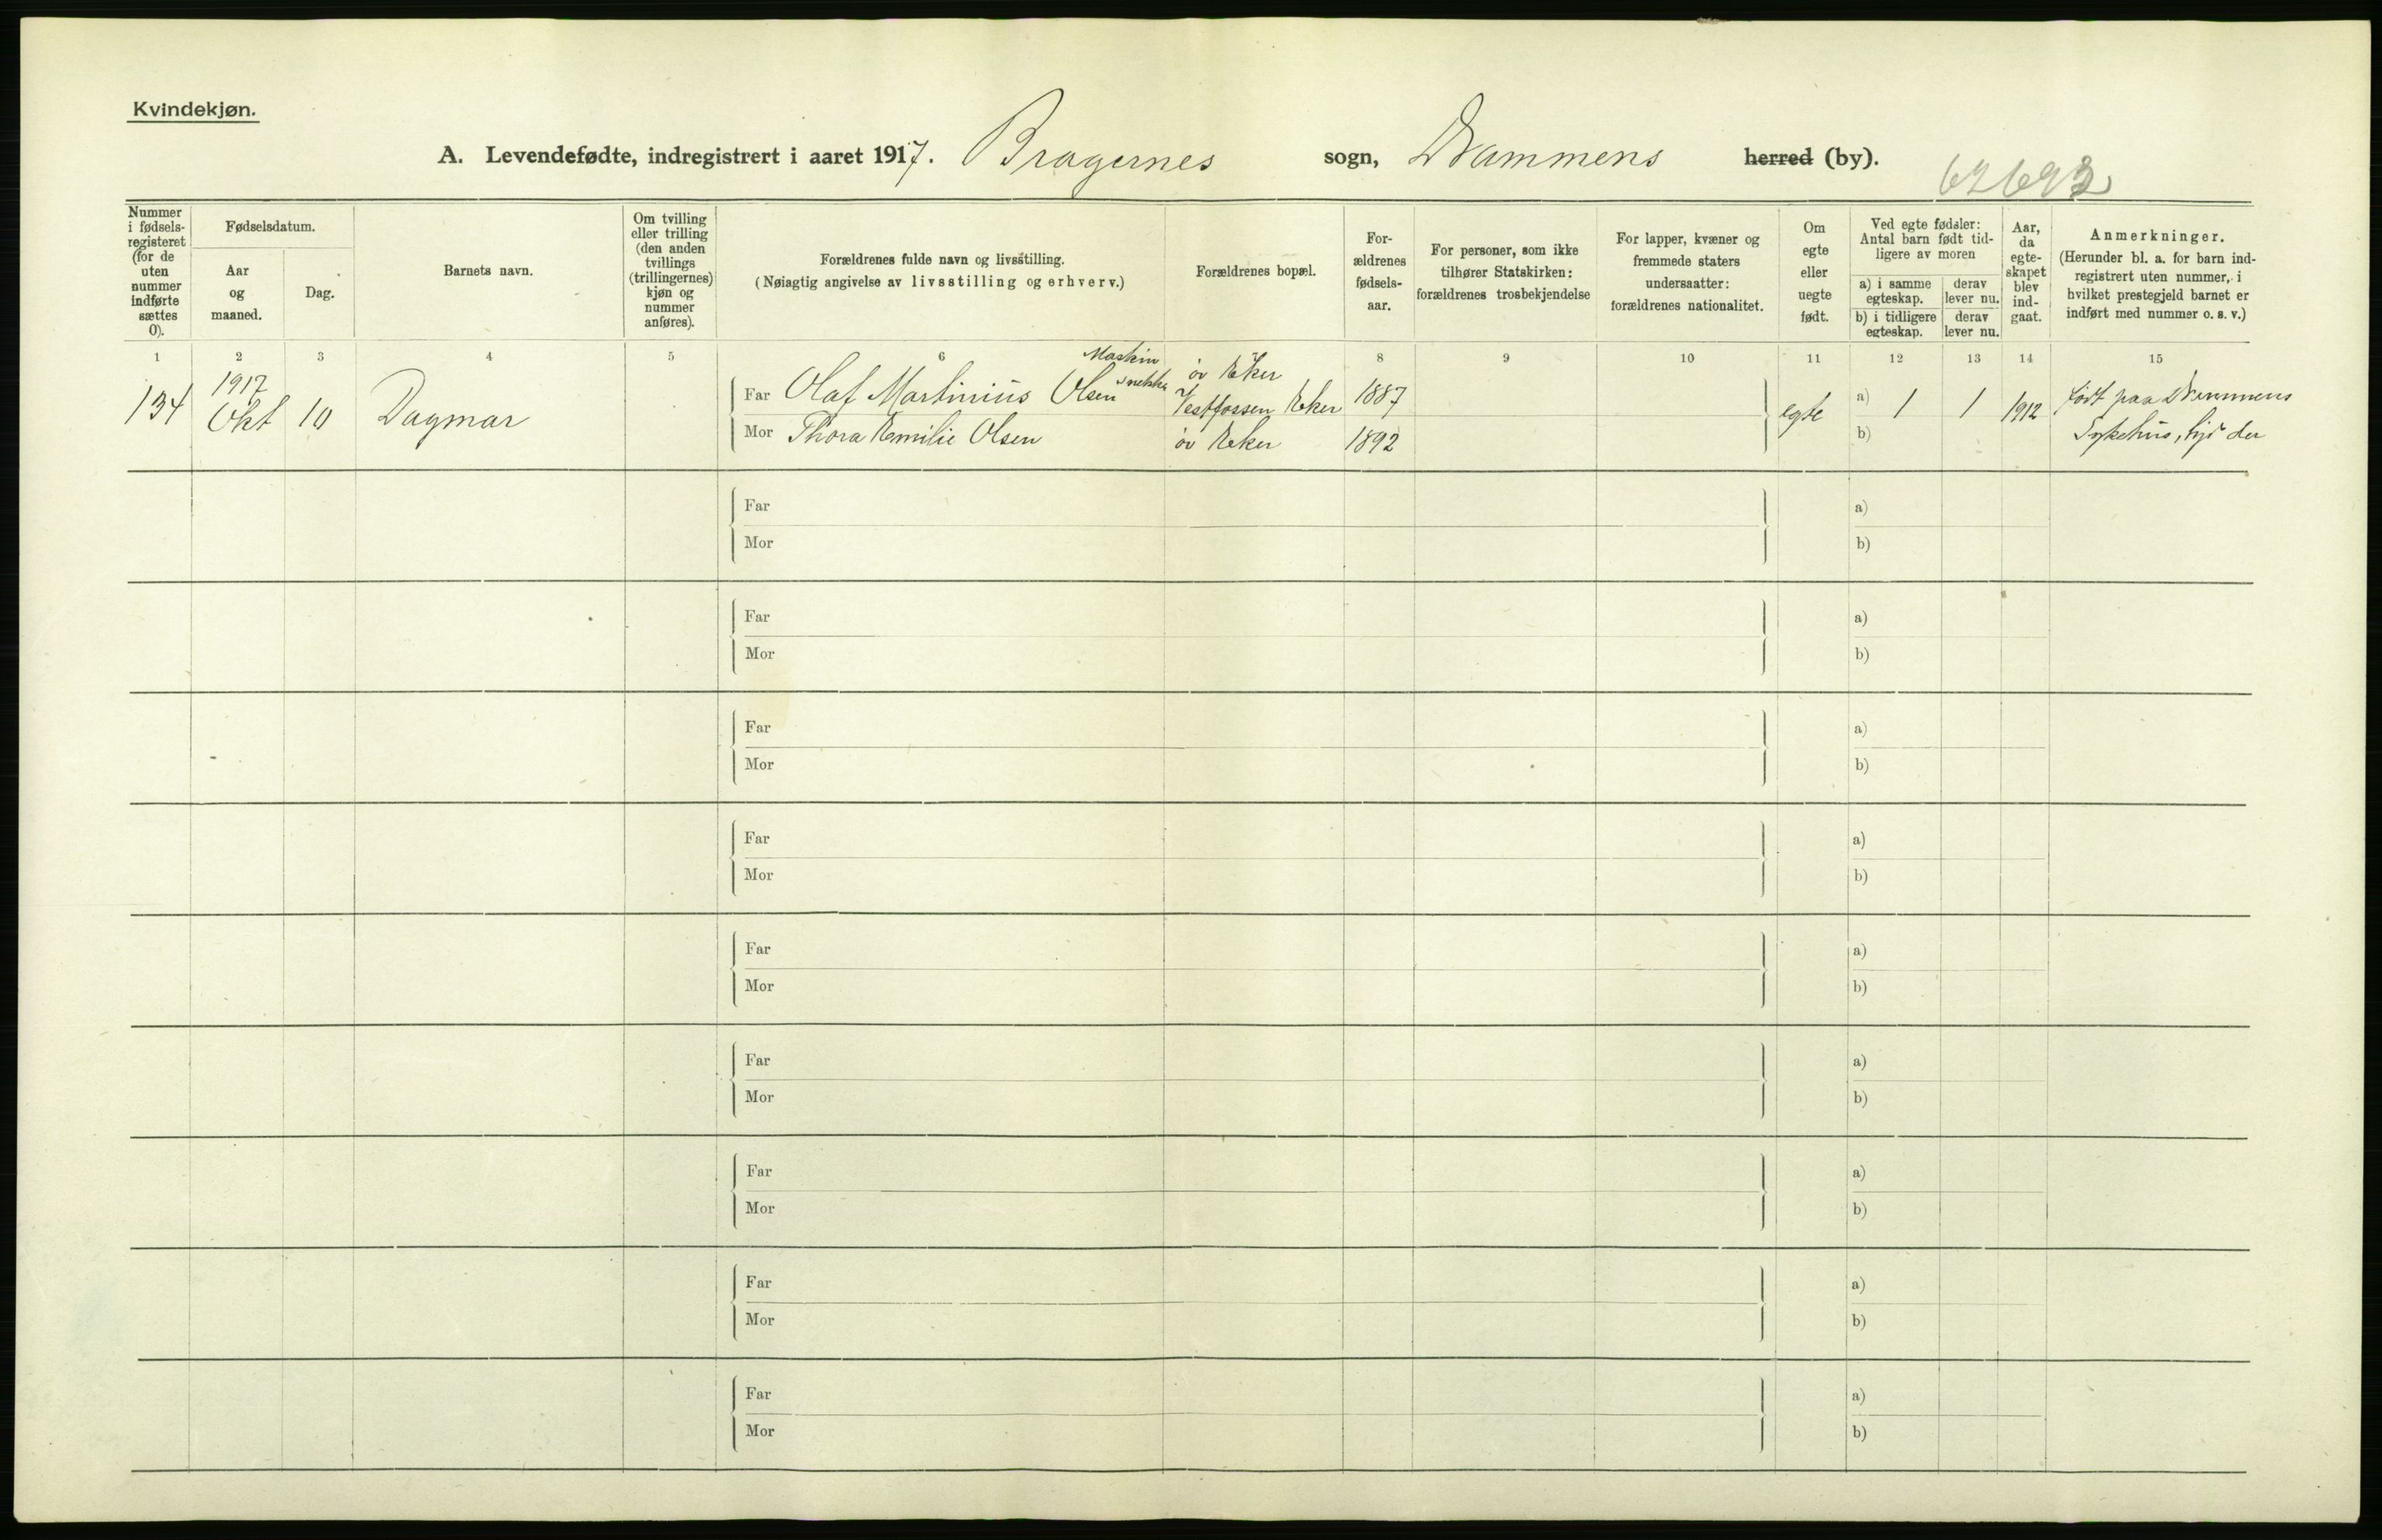 Kvindekjøn.
A. Levendefødte, indregistrert i aaret 1917. Bragernes sogn, Drammens herred (by).
Nummer i fødsels-registeret (for de uten nummer indførte sættes 0).
Fødselsdatum.
Aar og maaned.
Dag.
Barnets navn.
Om tvilling eller trilling (den anden tvillings (trillingernes) kjøn og nummer anføres).
Forældrenes fulde navn og livsstilling.
(Nøiagtig angivelse av livsstilling og erhverv.)
Forældrenes bopæl.
For-ældrenes fødsels-aar.
For personer, som ikke tilhører Statskirken: forældrenes trosbekjendelse
For lapper, kvæner og fremmede staters undersaatter: forældrenes nationalitet.
Om egte eller uegte født.
Ved egte fødsler: Antal barn født tid-ligere av moren
a) i samme egteskap.
derav lever nu.
b) i tidligere egteskap.
derav lever nu.
Aar, da egte-skapet blev ind-gaat.
Anmerkninger.
(Herunder bl. a. for barn ind-registrert uten nummer, i hvilket prestegjeld barnet er indført med nummer o. s. v.)
1 2 3 4 5 6 8 9 10 11 12 13 14 15
134 1917 Okt 10 Dagmar
Far Olaf Martinius Olsen Maskinsnekker øv Eker Vestfossen Eker 1887
Mor Thora Emilie Olsen øv Eker 1892
egte a) 1 1 1912 født paa Drammens
b) Sykehus, der
Far a)
Mor b)
Far a)
Mor b)
Far a)
Mor b)
Far a)
Mor b)
Far a)
Mor b)
Far a)
Mor b)
Far a)
Mor b)
Far a)
Mor b)
Far a)
Mor b)